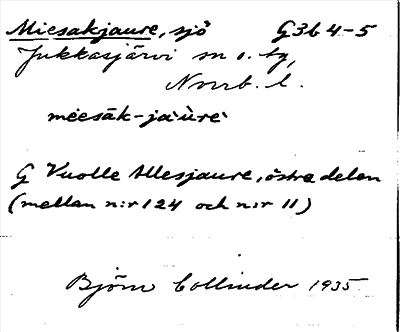 Miesakjaure, sjö G3b 4-5
Jukkasjärvi sn o. tg,
Norrb. l.
mi̯esāk-jàu̯rè
G Vuolle Allesjaure, östra delen
(mellan n:r 124 och n:r 11)
Björn Collinder 1935